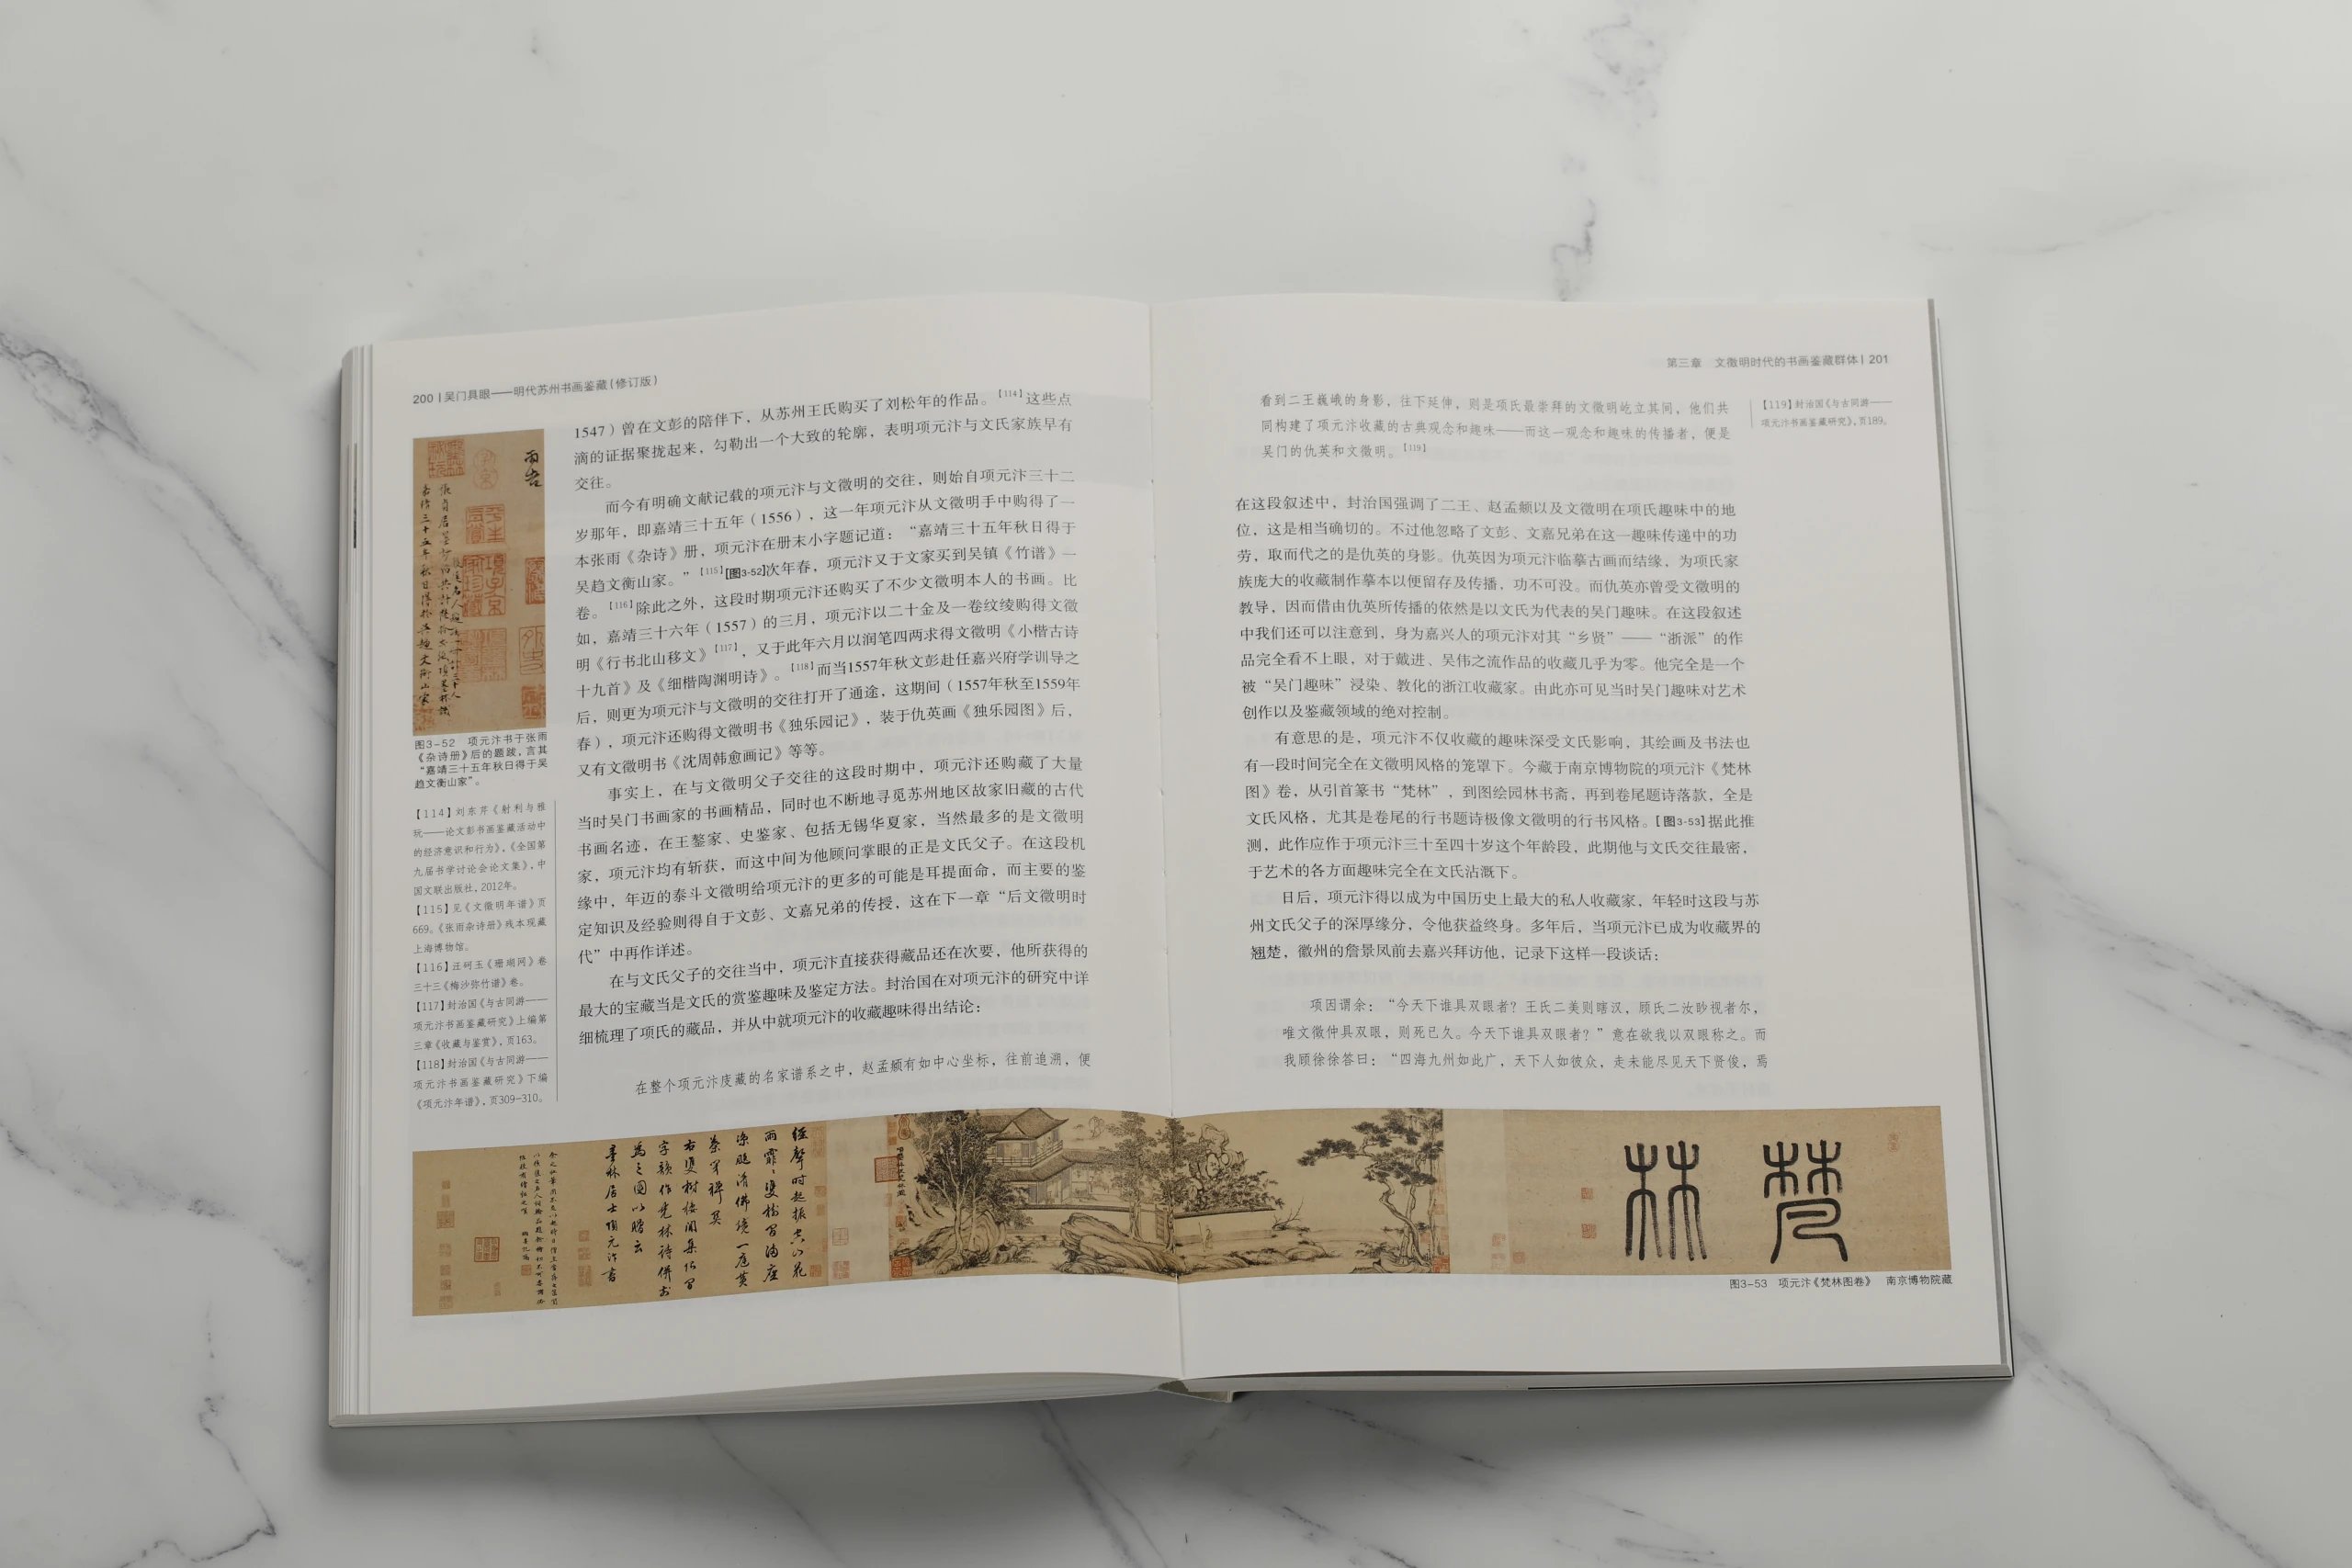 200 | 吴门具眼——明代苏州书画鉴藏(修订版)
1547）曾在文彭的陪伴下，从苏州王氏购买了刘松年的作品。【114】这些点
滴的证据聚拢起来，勾勒出一个大致的轮廓，表明项元汴与文氏家族早有
交往。
而今有明确文献记载的项元汴与文徵明的交往，则始自项元汴三十二
岁那年，即嘉靖三十五年（1556），这一年项元汴从文徵明手中购得了一
本张雨《杂诗》册，项元汴在册末小字题记道：“嘉靖三十五年秋日得于
吴趋文衡山家。”【115】[图3-52]次年春，项元汴又于文家买到吴镇《竹谱》一
卷。【116】除此之外，这段时期项元汴还购买了不少文徵明本人的书画。比
如，嘉靖三十六年（1557）的三月，项元汴以二十金及一卷纹绫购得文徵
明《行书北山移文》【117】，又于此年六月以润笔四两求得文徵明《小楷古诗
十九首》及《细楷陶渊明诗》。【118】而当1557年秋文彭赴任嘉兴府学训导之
后，则更为项元汴与文徵明的交往打开了通途，这期间（1557年秋至1559年
春），项元汴还购得文徵明书《独乐园记》，装于仇英画《独乐园图》后，
又有文徵明书《沈周韩愈画记》等等。
事实上，在与文徵明父子交往的这段时期中，项元汴还购藏了大量
当时吴门书画家的书画精品，同时也不断地寻觅苏州地区故家旧藏的古代
书画名迹，在王鏊家、史鉴家、包括无锡华夏家，当然最多的是文徵明
家，项元汴均有斩获，而这中间为他顾问掌眼的正是文氏父子。在这段机
缘中，年迈的泰斗文徵明给项元汴的更多的可能是耳提面命，而主要的鉴
定知识及经验则得自于文彭、文嘉兄弟的传授，这在下一章“后文徵明时
代”中再作详述。
在与文氏父子的交往当中，项元汴直接获得藏品还在次要，他所获得的
最大的宝藏当是文氏的赏鉴趣味及鉴定方法。封治国在对项元汴的研究中详
细梳理了项氏的藏品，并从中就项元汴的收藏趣味得出结论：
在整个项元汴庋藏的名家谱系之中，赵孟頫有如中心坐标，往前追溯，便
图3-52 项元汴书于张雨
《杂诗册》后的题跋，言其
“嘉靖三十五年秋日得于吴
趋文衡山家”。
【114】刘东芹《射利与雅
玩——论文彭书画鉴藏活动中
的经济意识和行为》，《全国第
九届书学讨论会论文集》，中
国文联出版社，2012年。
【115】见《文徵明年谱》页
669。《张雨杂诗册》残本现藏
上海博物馆。
【116】汪砢玉《珊瑚网》卷
三十三《梅沙弥竹谱》卷。
【117】封治国《与古同游——
项元汴书画鉴藏研究》上编第
三章《收藏与鉴赏》，页163。
【118】封治国《与古同游——
项元汴书画鉴藏研究》下编
《项元汴年谱》，页309-310。
第三章 文徵明时代的书画鉴藏群体 | 201
看到二王巍峨的身影，往下延伸，则是项氏最崇拜的文徵明屹立其间，他们共
同构建了项元汴收藏的古典观念和趣味——而这一观念和趣味的传播者，便是
吴门的仇英和文徵明。【119】
【119】封治国《与古同游——
项元汴书画鉴藏研究》，页189。
在这段叙述中，封治国强调了二王、赵孟頫以及文徵明在项氏趣味中的地
位，这是相当确切的。不过他忽略了文彭、文嘉兄弟在这一趣味传递中的功
劳，取而代之的是仇英的身影。仇英因为项元汴临摹古画而结缘，为项氏家
族庞大的收藏制作摹本以便留存及传播，功不可没。而仇英亦曾受文徵明的
教导，因而借由仇英所传播的依然是以文氏为代表的吴门趣味。在这段叙述
中我们还可以注意到，身为嘉兴人的项元汴对其“乡贤”——“浙派”的作
品完全看不上眼，对于戴进、吴伟之流作品的收藏几乎为零。他完全是一个
被“吴门趣味”浸染、教化的浙江收藏家。由此亦可见当时吴门趣味对艺术
创作以及鉴藏领域的绝对控制。
有意思的是，项元汴不仅收藏的趣味深受文氏影响，其绘画及书法也
有一段时间完全在文徵明风格的笼罩下。今藏于南京博物院的项元汴《梵林
图》卷，从引首篆书“梵林”，到图绘园林书斋，再到卷尾题诗落款，全是
文氏风格，尤其是卷尾的行书题诗极像文徵明的行书风格。[图3-53]据此推
测，此作应作于项元汴三十至四十岁这个年龄段，此期他与文氏交往最密，
于艺术的各方面趣味完全在文氏沾溉下。
日后，项元汴得以成为中国历史上最大的私人收藏家，年轻时这段与苏
州文氏父子的深厚缘分，令他获益终身。多年后，当项元汴已成为收藏界的
翘楚，徽州的詹景凤前去嘉兴拜访他，记录下这样一段谈话：
项因谓余：“今天下谁具双眼者？王氏二美则瞎汉，顾氏二汝眇视者尔，
唯文徵仲具双眼，则死已久。今天下谁具双眼者？”意在欲我以双眼称之。而
我顾徐徐答曰：“四海九州如此广，天下人如彼众，走未能尽见天下贤俊，焉
梵林
图3-53 项元汴《梵林图卷》 南京博物院藏